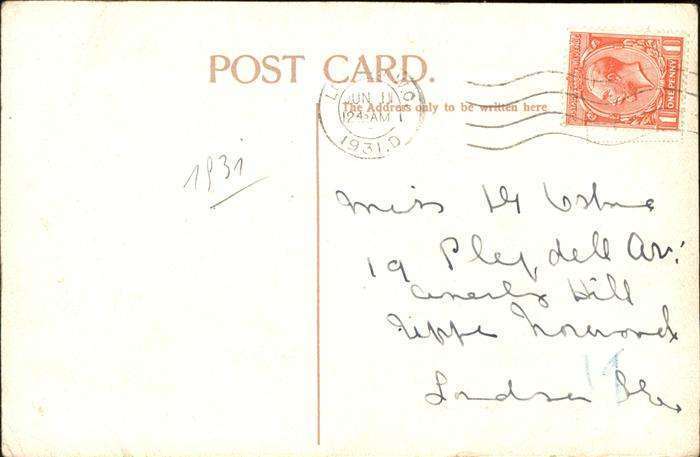 POST CARD.
The Address only to be written here
JUN 11
12 45 AM
1931.D
ONE PENNY
1931
Miss
19 Pleydell Av.
Anerley Hill
Upper Norwood
London S.E.